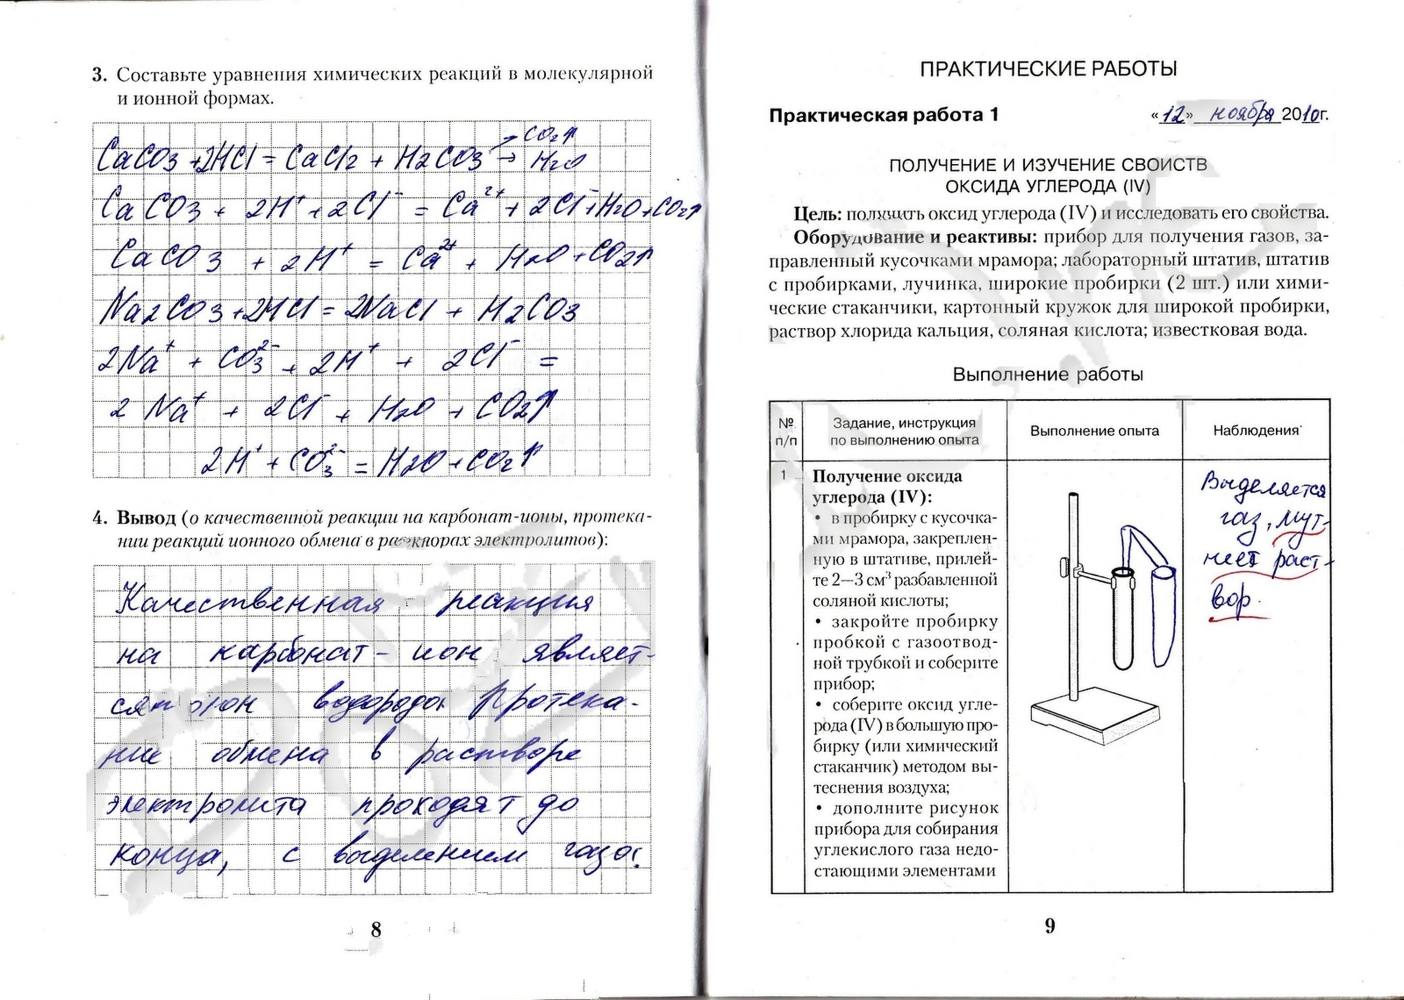 3. Составьте уравнения химических реакций в молекулярной
и ионной формах.
CaCO3 + 2HCl = CaCl2 + H2CO3 → CO2↑
H2O
CaCO3 + 2H⁺ + 2Cl⁻ = Ca²⁺ + 2Cl⁻ + H2O + CO2↑
CaCO3 + 2H⁺ = Ca²⁺ + H2O + CO2↑
Na2CO3 + 2HCl = 2NaCl + H2CO3
2Na⁺ + CO3²⁻ + 2H⁺ + 2Cl⁻ =
2Na⁺ + 2Cl⁻ + H2O + CO2↑
2H⁺ + CO3²⁻ = H2O + CO2↑
4. Вывод (о качественной реакции на карбонат-ионы, протека-
нии реакций ионного обмена в растворах электролитов):
Качественная реакция
на карбонат-ион являет-
ся ион водорода Протека-
ние обмена в растворе
электролита проходят до
конца, с выделением газа.
8
ПРАКТИЧЕСКИЕ РАБОТЫ
Практическая работа 1 «12» ноября 2010г.
ПОЛУЧЕНИЕ И ИЗУЧЕНИЕ СВОЙСТВ
ОКСИДА УГЛЕРОДА (IV)
Цель: получить оксид углерода (IV) и исследовать его свойства.
Оборудование и реактивы: прибор для получения газов, за-
правленный кусочками мрамора; лабораторный штатив, штатив
с пробирками, лучинка, широкие пробирки (2 шт.) или хими-
ческие стаканчики, картонный кружок для широкой пробирки,
раствор хлорида кальция, соляная кислота; известковая вода.
Выполнение работы
№ п/п
Задание, инструкция
по выполнению опыта
Выполнение опыта
Наблюдения
1
Получение оксида
углерода (IV):
• в пробирку с кусочка-
ми мрамора, закреплен-
ную в штативе, прилей-
те 2—3 см³ разбавленной
соляной кислоты;
• закройте пробирку
пробкой с газоотвод-
ной трубкой и соберите
прибор;
• соберите оксид угле-
рода (IV) в большую про-
бирку (или химический
стаканчик) методом вы-
теснения воздуха;
• дополните рисунок
прибора для собирания
углекислого газа недо-
стающими элементами
Выделяется
газ, мут-
неет раст-
вор.
9